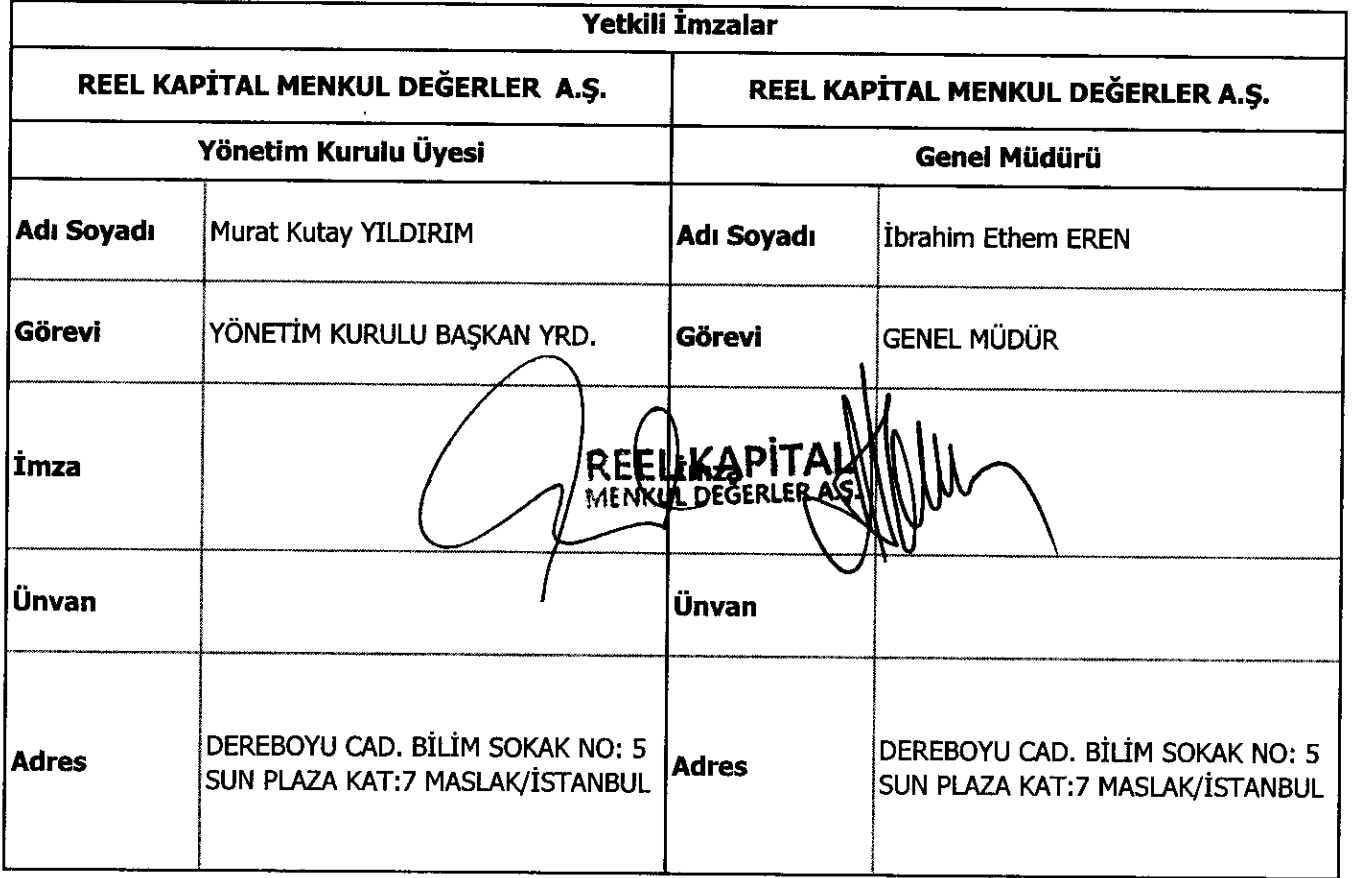 Yetkili İmzalar
REEL KAPİTAL MENKUL DEĞERLER A.Ş.
REEL KAPİTAL MENKUL DEĞERLER A.Ş.
Yönetim Kurulu Üyesi
Genel Müdürü
Adı Soyadı
Murat Kutay YILDIRIM
Adı Soyadı
İbrahim Ethem EREN
Görevi
YÖNETİM KURULU BAŞKAN YRD.
Görevi
GENEL MÜDÜR
İmza
İmza
REEL KAPİTAL
MENKUL DEĞERLER A.Ş.
Ünvan
Ünvan
Adres
DEREBOYU CAD. BİLİM SOKAK NO: 5
SUN PLAZA KAT:7 MASLAK/İSTANBUL
Adres
DEREBOYU CAD. BİLİM SOKAK NO: 5
SUN PLAZA KAT:7 MASLAK/İSTANBUL